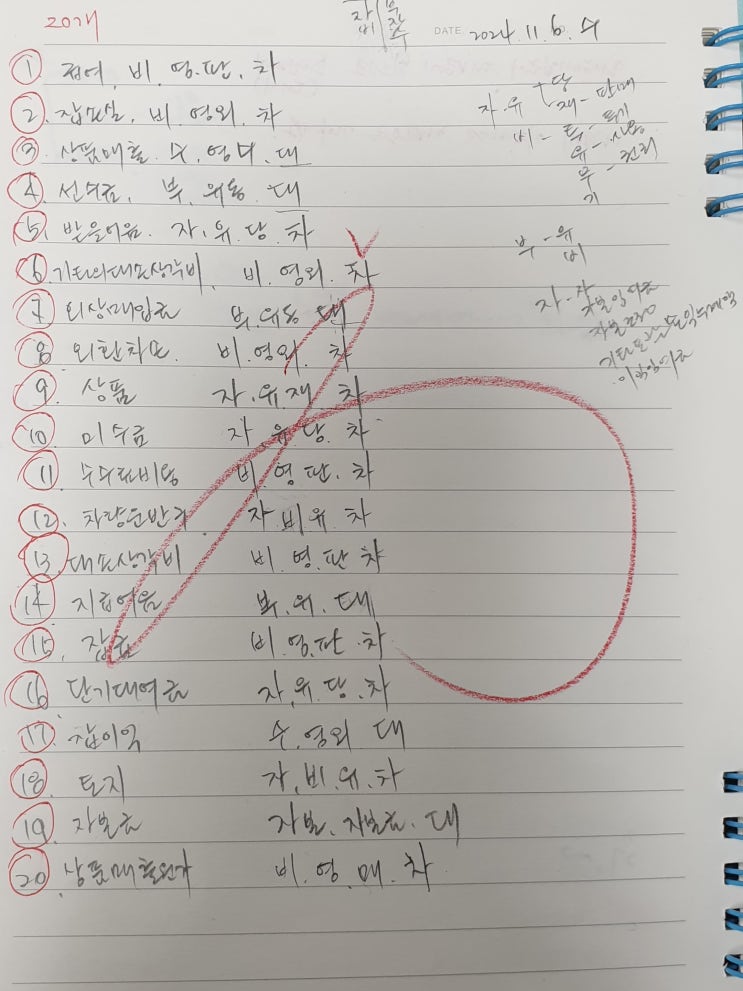 20개
DATE 2024. 11. 6. 수
① 급여, 비. 영. 판. 차
②. 잡손실, 비. 영외. 차
③. 상품매출. 수. 영수. 대
④. 선수금, 부. 유동. 대
⑤. 받을어음. 자. 유. 당. 차
⑥. 기타의대손상각비, 비. 영외. 차
⑦. 외상매입금 부. 유동 대
⑧. 외환차손. 비. 영외. 차
⑨. 상품 자. 유. 재 차
⑩. 미수금 자 유 당. 차
⑪. 수수료비용 비. 영. 판. 차
⑫. 차량운반구 자. 비. 유. 차
⑬. 대손상각비 비. 영. 판 차
⑭ 지급어음 부. 유. 대
⑮. 잡급 비. 영. 판. 차
⑯. 단기대여금 자. 유. 당. 차
⑰. 잡이익 수. 영외. 대
⑱. 토지 자. 비. 유. 차
⑲. 자본금 자본. 자본금. 대
⑳. 상품매출원가 비. 영. 매. 차
자. 유 당
재 - 판매
비 - 투 - 투기
유 - 사용
무 - 권리
기
부 - 유
비
자 - 자
자본잉여금